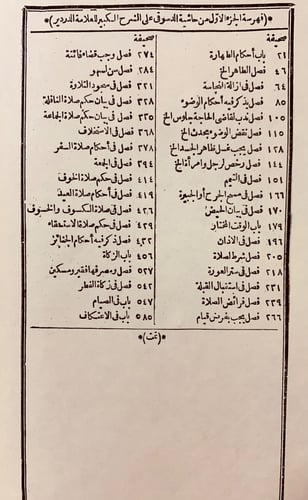 *(فهرسة الجزء الاول من حاشية الدسوقي على الشرح الكبير للعلامة الدردير)*
صحيفة
باب أحكام الطهارة
٤٦ فصل الطاهر الخ
٦٤ فصل في ازالة النجاسة
٨٥ فصل يذكر فيه أحكام الوضوء
١٠٥ فصل ندب لقاضي الحاجة جلوس الخ
١١٥ فصل نقض الوضوء بحدث الخ
١٢٨ فصل يجب غسل ظاهر الجسد الخ
١٤٤ فصل رخص لرجل وامرأة الخ
١٥١ فصل في التيمم
١٦٦ فصل في مسح الجرح أو الجبيرة
١٧٠ فصل في بيان الحيض
١٧٩ باب الوقت المختار
١٩٦ فصل في الاذان
٢٠٥ فصل شرط لصلاة
٢١٨ فصل في ستر العورة
فصل في استقبال القبلة
٢٣٩ فصل فرائض الصلاة
٢٦٦ فصل يجب بفرض قيام
صحيفة
٢٧٤ فصل وجب قضاء فائتة
٢٨٤ فصل سن لسهو
٣٢١ فصل في سجود التلاوة
٣٢٨ فصل في بيان حكم صلاة النافلة
٣٣٥ فصل في بيان حكم صلاة الجماعة
فصل في الاستخلاف
٣٧٨ فصل في أحكام صلاة السفر
٣٩٤ فصل في الجمعة
٤١٤ فصل في حكم صلاة الخوف
٤١٩ فصل في أحكام صلاة العيد
٤٢٦ فصل في صلاة الكسوف والخسوف
٤٢٩ فصل في حكم صلاة الاستسقاء
٤٣٢ فصل ذكر فيه أحكام الجنائز
٤٥٦ باب الزكاة
٥٢٧ فصل ومصرفها فقير ومسكين
٥٤٢ فصل في زكاة الفطر
٥٤٧ باب في الصيام
٥٨٥ باب في الاعتكاف
*(تمت)*